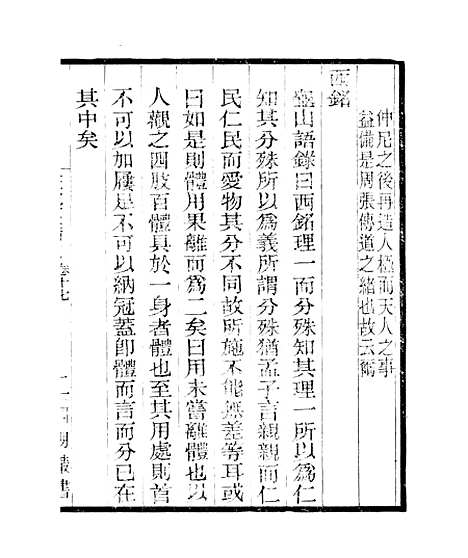 仲尼之後再造人極而天人之事
益備是周張傳道之緒也故云爾
西銘
龜山語錄曰西銘理一而分殊知其理一所以為仁
知其分殊所以為義所謂分殊猶孟子言親親而仁
民仁民而愛物其分不同故所施不能無差等耳或
曰如是則體用果離而為二矣曰用未嘗離體也以
人觀之四肢百體具於一身者體也至其用處則首
不可以加屨足不可以納冠蓋即體而言而分已在
其中矣
四明叢書